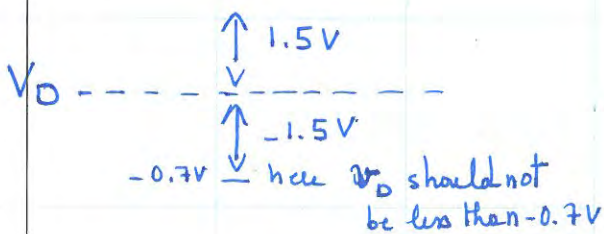 1.5V
V_D
-1.5V
-0.7V here v_D should not
be less than -0.7V